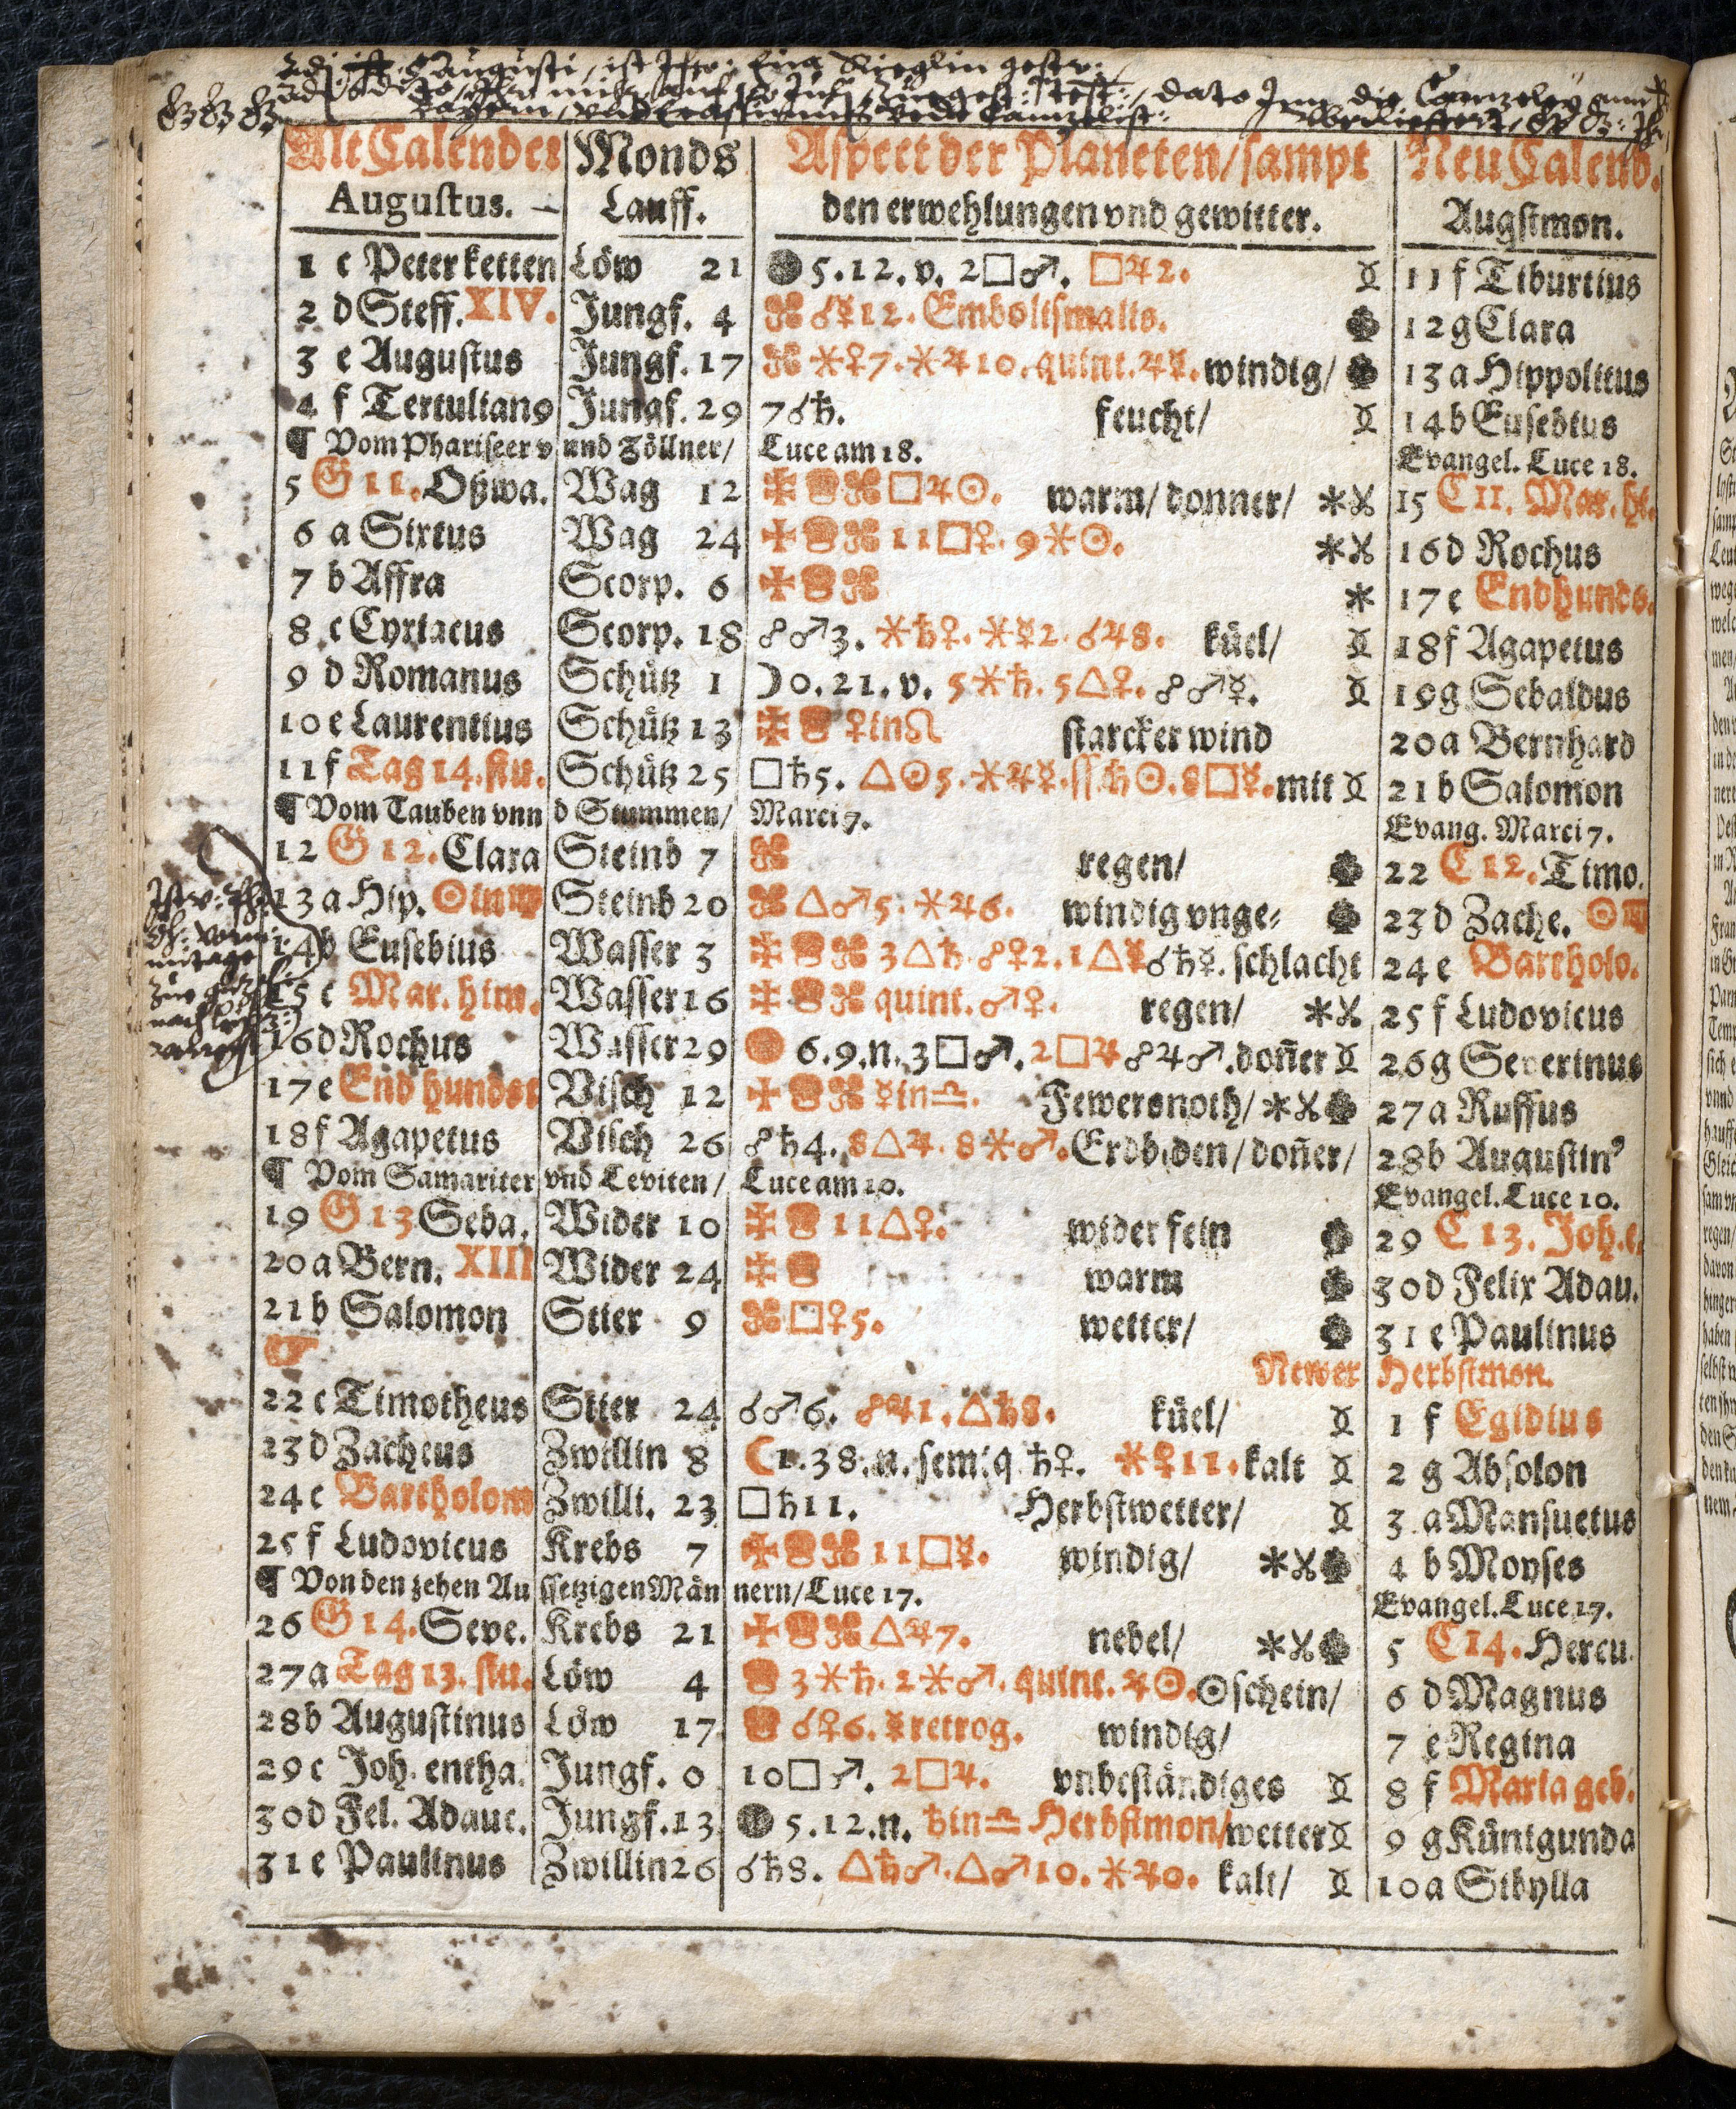 Augusti, ist
dato die Cantzeley
Alt Calender Monds Aspect der Planeten/sampt Neu Calend.
Augustus. Lauff. den erwehlungen vnd gewitter. Augstmon.
1 c Peter ketten Löw 21 ● 5.12.v. 2□♂. □♃2. 11 f Tiburtius
2 d Steff. XIV. Jungf. 4 ☌☿12. Embolismalis. 12 g Clara
3 e Augustus Jungf. 17 ⚹♀7. ⚹♃10. quint. ♃☿. windig/ 13 a Hippolitus
4 f Tertulianꝰ Jungf. 29 7☌♄. feucht/ 14 b Eusebius
¶ Vom Phariseer v und Zöllner/ Luce am 18. Evangel. Luce 18.
5 G 11. Oßwa. Wag 12 □♃☉. warm/ donner/ 15 C 11. Mar. hi.
6 a Sixtus Wag 24 11□♀. 9⚹☉. 16 d Rochus
7 b Affra Scorp. 6 17 e End hunds.
8 c Cyriacus Scorp. 18 ☍♂3. ⚹♄♀. ⚹☿2. ☌♃8. küel/ 18 f Agapetus
9 d Romanus Schütz 1 ☽0.21.v. 5⚹♄. 5△♀. ☍♂☿. 19 g Sebaldus
10 e Laurentius Schütz 13 ♀in♌ starcker wind 20 a Bernhard
11 f Tag 14. stu. Schütz 25 □♄5. △☉5. ⚹♃☿. ss ♄☉. 8□☿. mit 21 b Salomon
¶ Vom Tauben vnn d Stummen/ Marci 7. Evang. Marci 7.
12 G 12. Clara Steinb 7 regen/ 22 C 12. Timo.
13 a Hip. ☉in♍ Steinb 20 △♂5. ⚹♃6. windig vnge⸗ 23 d Zache. ☉♍
14 b Eusebius Wasser 3 3△♄. ☍♀2. 1△☿ ☌♄☿. schlacht 24 e Bartholo.
15 c Mar. him. Wasser 16 quint. ♂♀. regen/ 25 f Ludovicus
16 d Rochus Wasser 29 6.9.n. 3□♂. 2□♃ ☍♃♂. doñer 26 g Severinus
17 e End hundst Visch 12 ☿in♎. Fewersnoth/ 27 a Ruffus
18 f Agapetus Visch 26 ☍♄4. 8△♃. 8⚹♂. Erdbiden/ doñer/ 28 b Augustinꝰ
¶ Vom Samariter vnd Leviten/ Luce am 10. Evangel. Luce 10.
19 G 13 Seba. Wider 10 11△♀. wider fein 29 C 13. Joh. e
20 a Bern. XIII Wider 24 warm 30 d Felix Adau.
21 b Salomon Stier 9 □♀5. wetter/ 31 e Paulinus
☞ Newer Herbstmon.
22 c Timotheus Stier 24 ☌♂6. ☍♃1. △♄8. küel/ 1 f Egidius
23 d Zacheus Zwillin 8 ☾1.38.n. semiq ♄♀. ⚹♀11. kalt 2 g Absolon
24 e Bartholom Zwilli. 23 □♄11. Herbstwetter/ 3 a Mansuetus
25 f Ludovicus Krebs 7 11□☿. windig/ 4 b Moyses
¶ Von den zehen Au ssetzigen Män nern/ Luce 17. Evangel. Luce 17.
26 G 14. Seve. Krebs 21 △♃7. nebel/ 5 C 14. Hercu.
27 a Tag 13. stu. Löw 4 3⚹♄. 2⚹♂. quint. ♃☉. ☉schein/ 6 d Magnus
28 b Augustinus Löw 17 ☌♀6. ☿retrog. windig/ 7 e Regina
29 c Joh. entha. Jungf. 0 10□♂. 2□♃. vnbeständiges 8 f Maria geb.
30 d Fel. Adauc. Jungf. 13 ● 5.12.n. ♄in♎ Herbstmon/ wetter 9 g Künigunda
31 e Paulinus Zwillin 26 ☌♄8. △♄♂. △♂10. ⚹♃0. kalt/ 10 a Sibylla